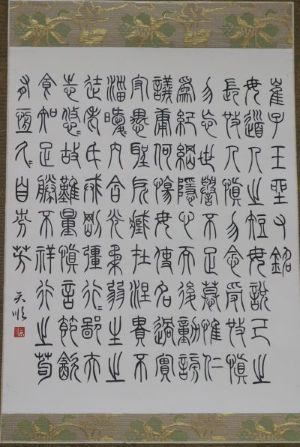 崔子玉座右銘
毋道人之短毋說己之
長施人慎勿念受施慎
勿忘世譽不足慕惟仁
為紀綱隱心而後動謗
議庸何傷毋使名過實
守愚聖所臧在涅貴不
淄曖〻內含光柔弱生之
徒老氏誡剛彊行〻鄙夫
志悠〻故難量慎言節飲
食知足勝不祥行之苟
有恆久〻自芬芳